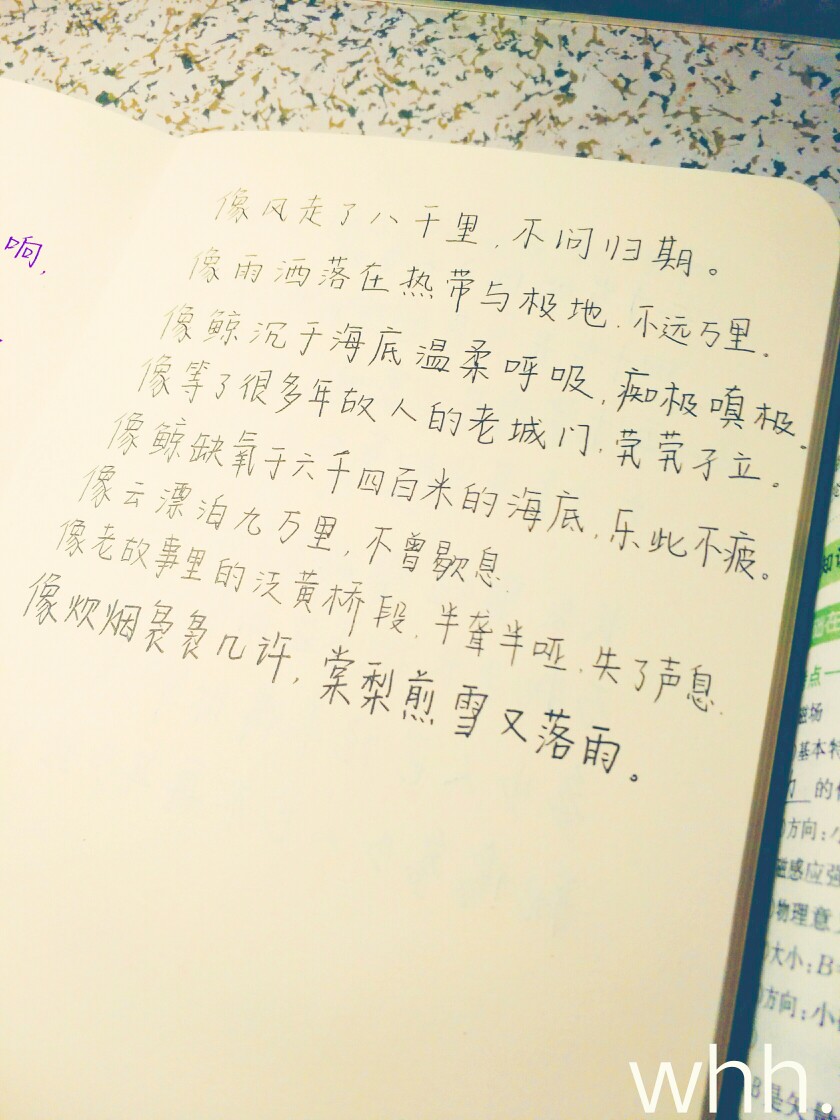 像风走了八千里，不问归期。
像雨洒落在热带与极地，不远万里。
像鲸沉于海底温柔呼吸，痴极嗔极。
像等了很多年故人的老城门，茕茕孑立。
像鲸缺氧于六千四百米的海底，乐此不疲。
像云漂泊九万里，不曾歇息。
像老故事里的泛黄桥段，半聋半哑，失了声息。
像炊烟袅袅几许，棠梨煎雪又落雨。
响，
点一
磁场
基本特
的作
方向：小
磁感应强
物理意
大小：B
方向：小
B是矢
whh.